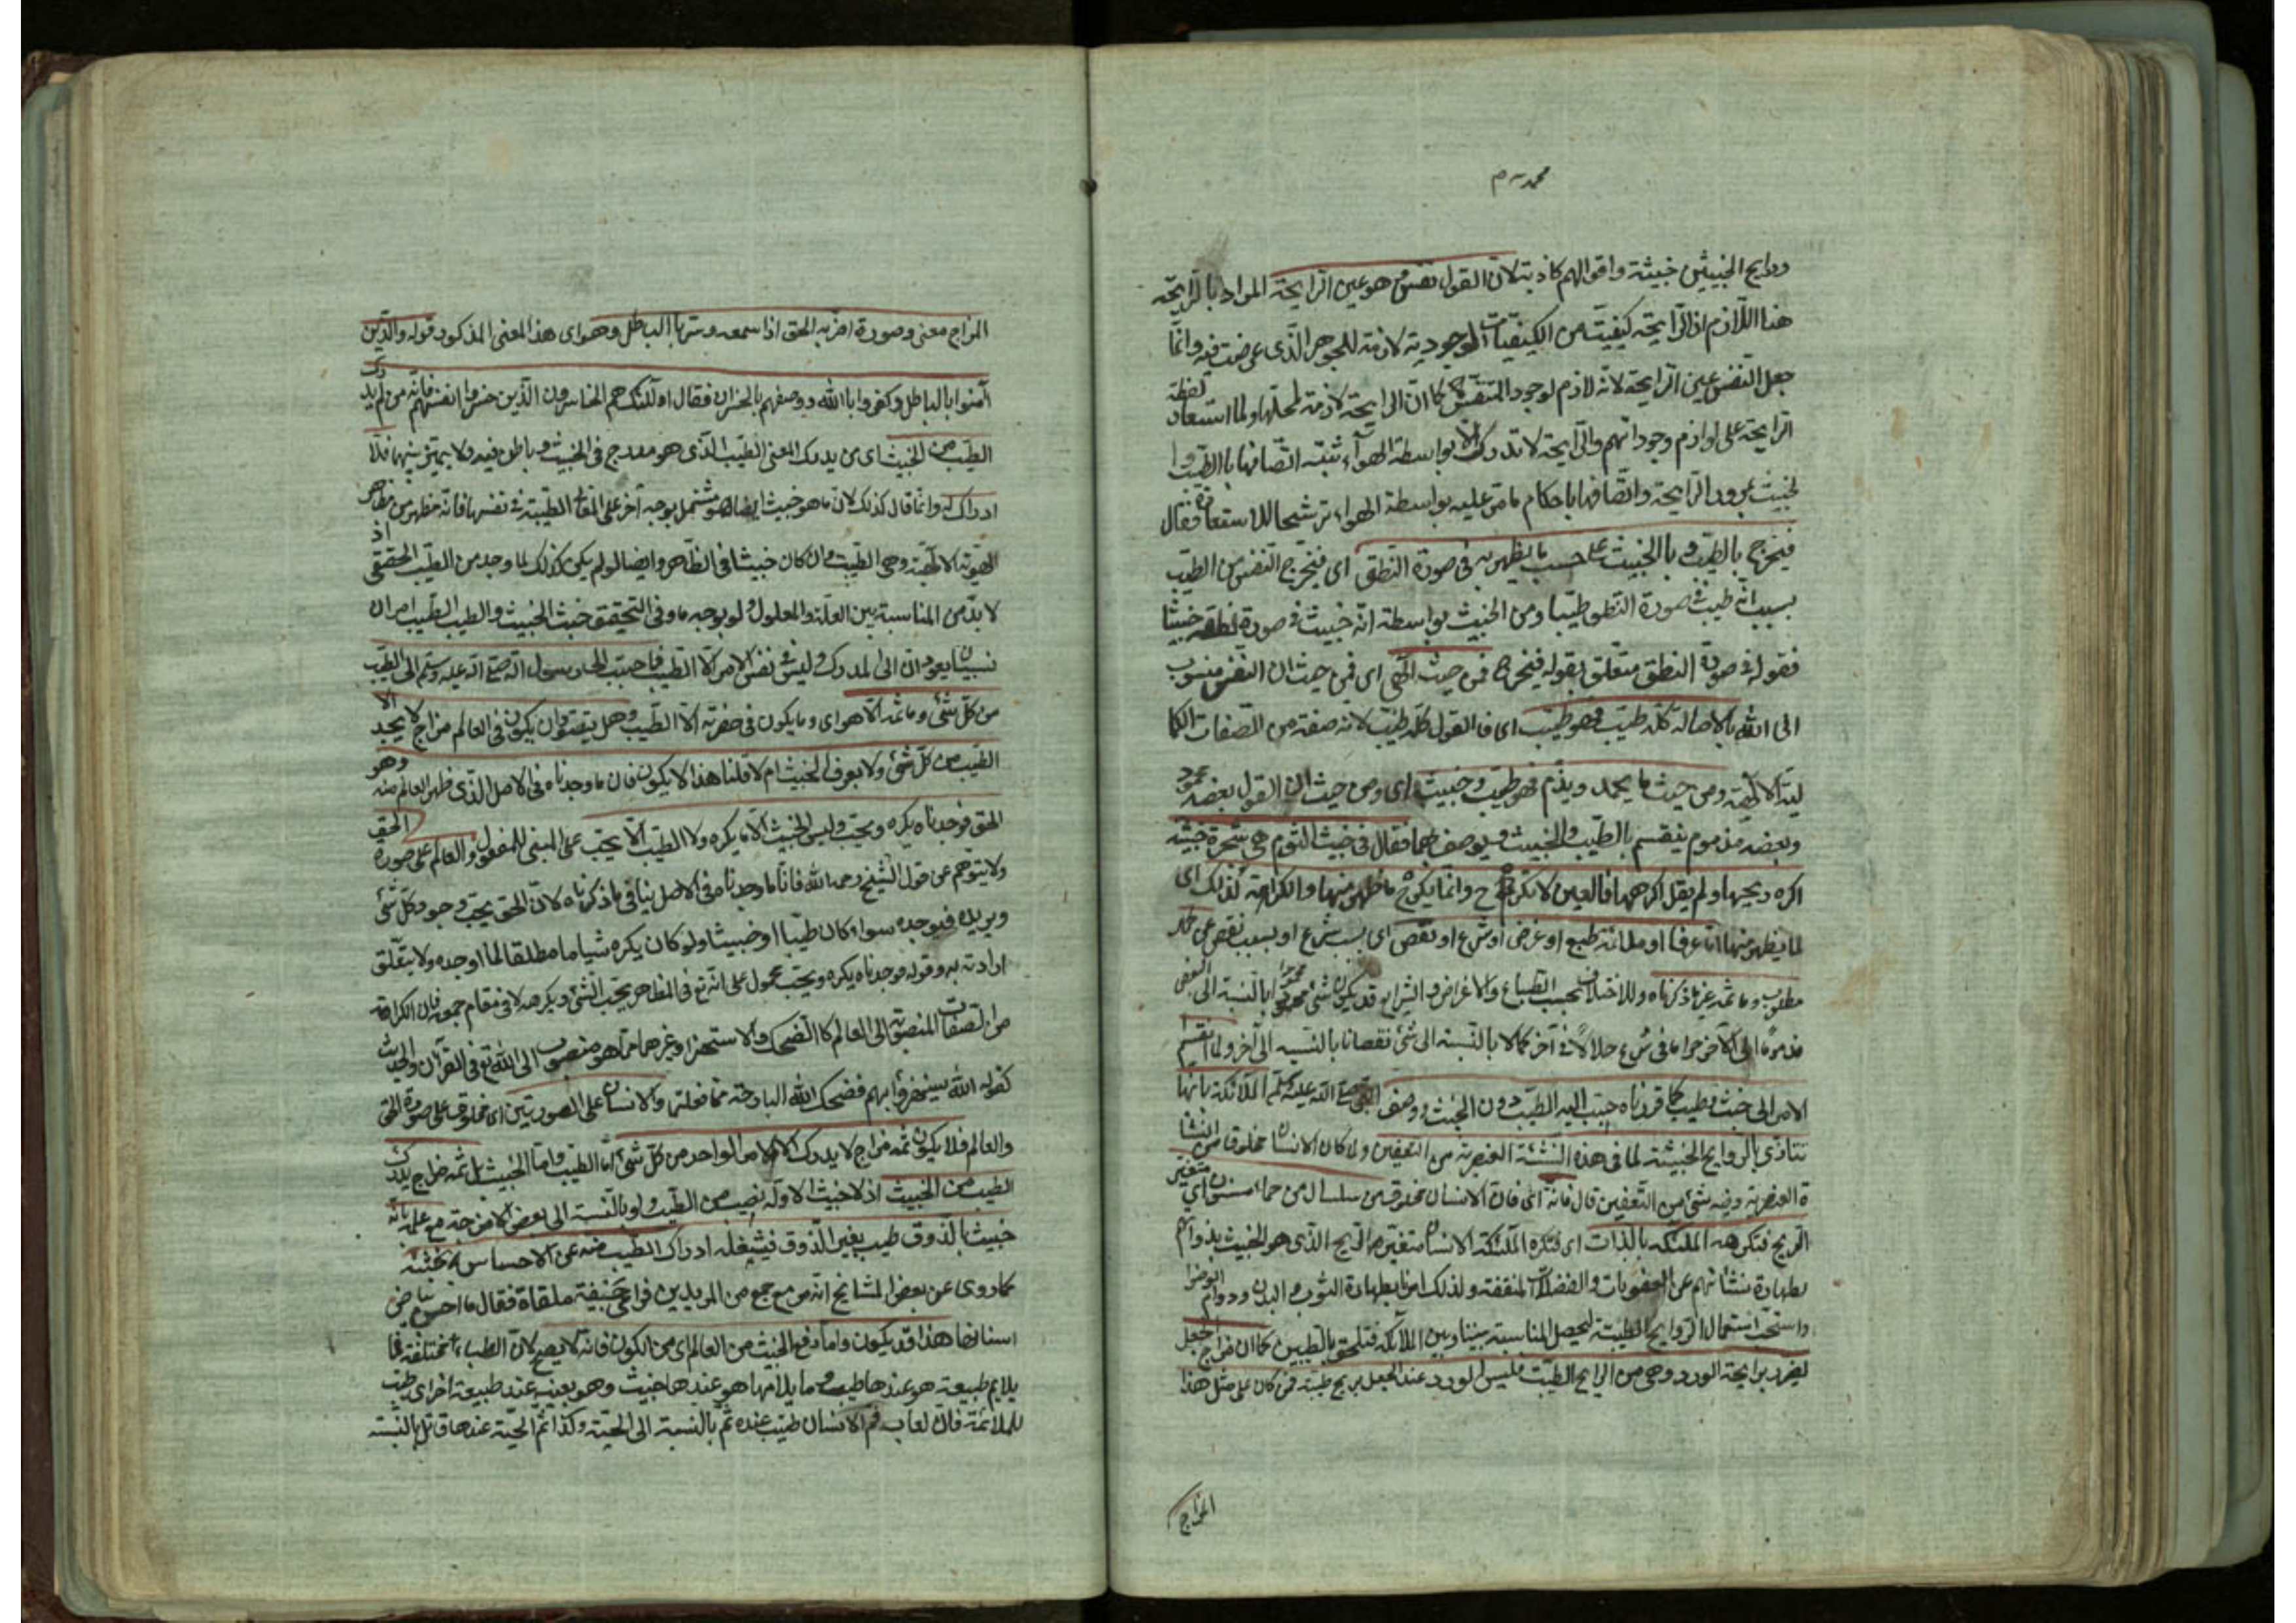 محمدية م
وروايح الخبيثين خبيثة واقوالهم كاذبة لان القول نفس وهو عين الرايحة المراد بالرايحة
هنا اللازم اذ الرايحة كيفية من الكيفيات الوجودية لازمة للجوهر الذى عرضت فيه وانما
جعل النفس عين الرايحة لانه لازم لوجود المتنفس كما ان الرايحة لازمة لمحلها ولما استعار لفظة
الرايحة على لوازم وجوداتهم والرايحة لا تدرك الا بواسطة الهواء ثبته اتصافها بالطيب وا
لخبيث مرور الرايحة واتصافها باحكام ما مر عليه بواسطة الهواء ترشيحا للاستعارة فقال
فيخرج بالطيب وبالخبيث على حسب ما يظهر به فى صورة النطق اى فيخرج النفس من الطيب
بسبب انه طيب فى صورة النطق طيبا ومن الخبيث بواسطة انه خبيث فى صورة نطقه خبيثا
فقوله فى صورة النطق متعلق بقوله فيخرج فمن حيث الهى اى فمن حيث ان النفس منسوب
الى الله بالاصالة كله طيب فهو طيب اى فالقول كله طيب لانه صفة من الصفات الكما
لية الالهية ومن حيث ما يحمد ويذم فهو طيب وخبيث اى ومن حيث ان القول بعضه محمود
وبعضه مذموم ينقسم بالطيب والخبيث ويوصف بهما فقال فى خبث الثوم هى شجرة خبيثة
اكره ريحها ولم يقل اكرهها فالعين لا تكره ح وانما يكره ما ظهر منها والكراهة كذلك اى
لما يظهر منها اما عرفا او ملائمة طبع او غرض او شرع او نقص اى بسبب شرع او بسبب نقص عن كمال
مطلوب وما ثمه غير ما ذكرناه وللاختلاف بحسب الطباع والاغراض والشرايع قد يكون شئ محمودا بالنسبة الى البعض
مذموما الى الآخر حراما فى شرع حلالا فى آخر كمالا بالنسبة الى شئ نقصانا بالنسبة الى آخر ولما انقسم
الامر الى خبث وطيب كما قررناه حبب اليه الطيب دون الخبيث ووصف النبى صلى الله عليه وسلم الملائكة بانها
تتاذى بالروايح الخبيثة لما فى هذه النشئة العنصرية من التعفين ولما كان الانسان مخلوقا من النشا
ة العنصرية وفيه شئ من التعفين قال فانه اى فان الانسان مخلوق من صلصال من حماء مسنون اى متغير
الريح فتكرهه الملئكة بالذات اى فتكره الملئكة الانسان متغير الريح الذى هو الخبيث بذواتهم
لطهارة نشئاتهم عن العفونات والفضلات المنقفة ولذلك امرنا بطهارة الثوب والبدن ودوام الوضوء
واستحب استعمال الروايح الطيبة ليحصل المناسبة بيننا وبين الملائكة فتلحق بالطيبين كما ان مزاج الجعل
يضرر برايحة الورد وهى من الرايح الطيبة فليس الورد عند الجعل بريح طيبة فمن كان على مثل هذا
المزاج
المزاج معنى وصورة اضر به الحق اذا سمعه وسر بالباطل وهو اى هذا المعنى المذكور قوله والذين
آمنوا بالباطل وكفروا بالله ووصفهم بالخسران فقال اولئك هم الخاسرون الذين خسروا انفسهم فانه من لم يدرك
الطيب من الخبيث اى من يدرك المعنى الطيب الذى هو مدرج فى الخبيث وباطن فيه ولا يميز بينهما فلا
ادراك له وانما قال كذلك لان ما هو خبيث ايضا هو مشتمل بوجه آخر على المعانى الطيبة فى نفسها فانه مظهر من مظاهر
الهوية الالهية وهى الطيبة وان كان خبيثا فى الظاهر وايضا لو لم يكن كذلك لما وجد من الطيب الحقيقى اذ
لا بد من المناسبة بين العلة والمعلول ولو بوجه ما وفى التحقيق خبث الخبيث والطيب الطيب امران
نسبيان يعودان الى المدرك وليس فى نفس الامر الا الطيب فما حبب الى رسول الله صلى الله عليه وسلم الا الطيب
من كل شئ وما ثمه الا هو اى وما يكون فى حضرته الا الطيب وهل يتصور ان يكون فى العالم مزاج لا يجد الا
الطيب من كل شئ ولا يعرف الخبيث ام لا قلنا هذا لا يكون فان ما وجدناه فى الاصل الذى ظهر العالم منه وهو
الحق فوجدناه يكره ويحب وليس الخبيث الا ما يكره ولا الطيب الا ما يحب على المبنى للمفعول والعالم على صورة الحق
ولا يتوهم عن قول الشيخ رحمه الله فانا ما وجدناه فى الاصل ينافى ما ذكرناه لان الحق يحب وجود كل شئ
ويريده فيوجده سواء كان طيبا او خبيثا ولو كان يكره شيا ما مطلقا لما اوجده ولا يتعلق
ارادته به وقوله فوجدناه يكره ويحب محمول على انه تع فى المظاهر يحب الشئ ويكرهه لا فى مقام جمعه فان الكراهة
من الصفات المنصوبة الى العالم كالضحك والاستهزاء وغيرهما مما هو منصوب الى الله تع فى القرآن والحديث
كقوله الله يستهزؤا بهم فضحك الله البارحة مما فعلتما والانسان على الصورتين اى مخلوق على صورة الحق
والعالم فلا يكون ثمه مزاج لا يدرك الا الامر الواحد من كل شئ اما الطيب واما الخبيث بل ثمه مزاج يدرك
الطيب من الخبيث اذ لا خبيث الا وله نصيب من الطيب ولو بالنسبة الى بعض الامزجة مع علمه بانه
خبيث بالذوق طيب بغير الذوق فيشغله ادراك الطيب منه عن الاحساس بخبثه
كما روى عن بعض المشايخ انه مر مع جمع من المريدين فراى جيفة ملقاة فقال ما احسن بياض
اسنانها هذا قد يكون واما دفع الخبث من العالم اى من الكون فانه لا يصح لان الطباء مختلفة فما
يلايم طبيعة هو عندها طيب وما يلامها هو عندها خبيث وهو بعينه عند طبيعة اخرى طيب
للملائمة فان لعاب فم الانسان طيب عنده سم بالنسبة الى الحية وكذا سم الحية عندها قاتل بالنسبة